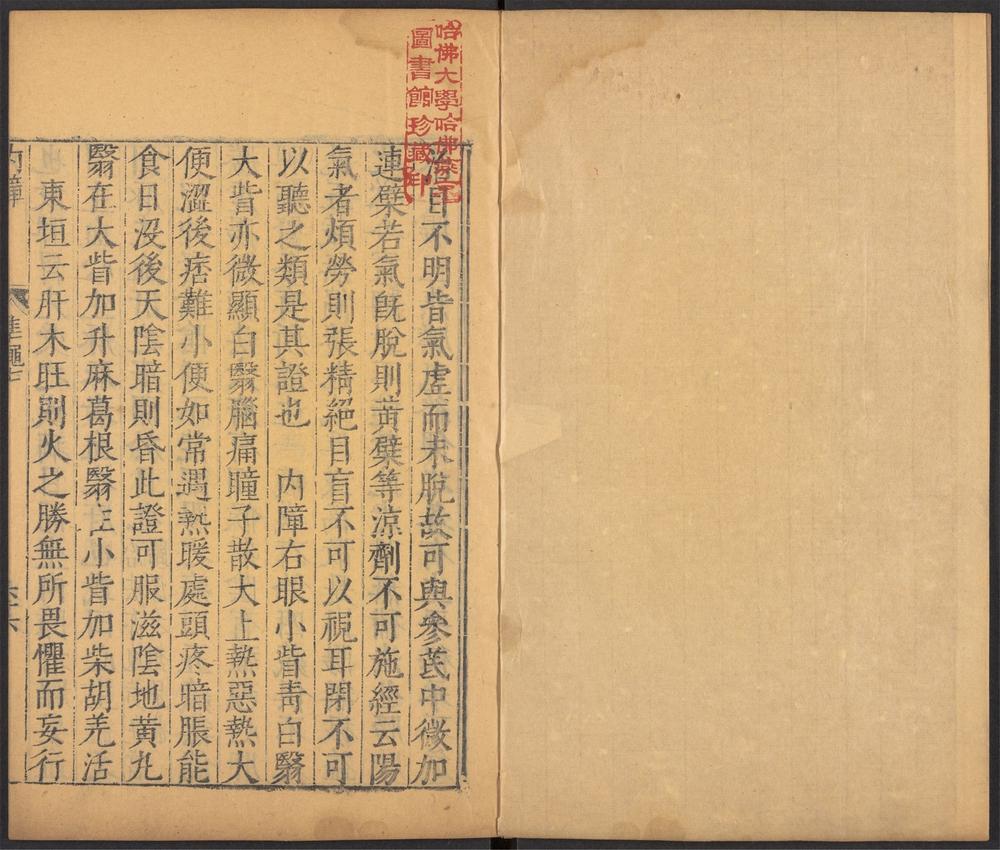 哈佛大學哈佛燕京
圖書館珍藏印
治目不明皆氣虛而未脫故可與參芪中微加
連檗若氣既脫則黃檗等涼劑不可施經云陽
氣者煩勞則張精絕目盲不可以視耳閉不可
以聽之類是其證也　內障右眼小眥青白翳
大眥亦微顯白翳腦痛瞳子散大上熱惡熱大
便澀後痞難小便如常遇熱暖處頭疼暗脹能
食日沒後天陰暗則昏此證可服滋陰地黃丸
翳在大眥加升麻葛根翳在小眥加柴胡羌活
東垣云肝木旺則火之勝無所畏懼而妄行
內障
準繩七